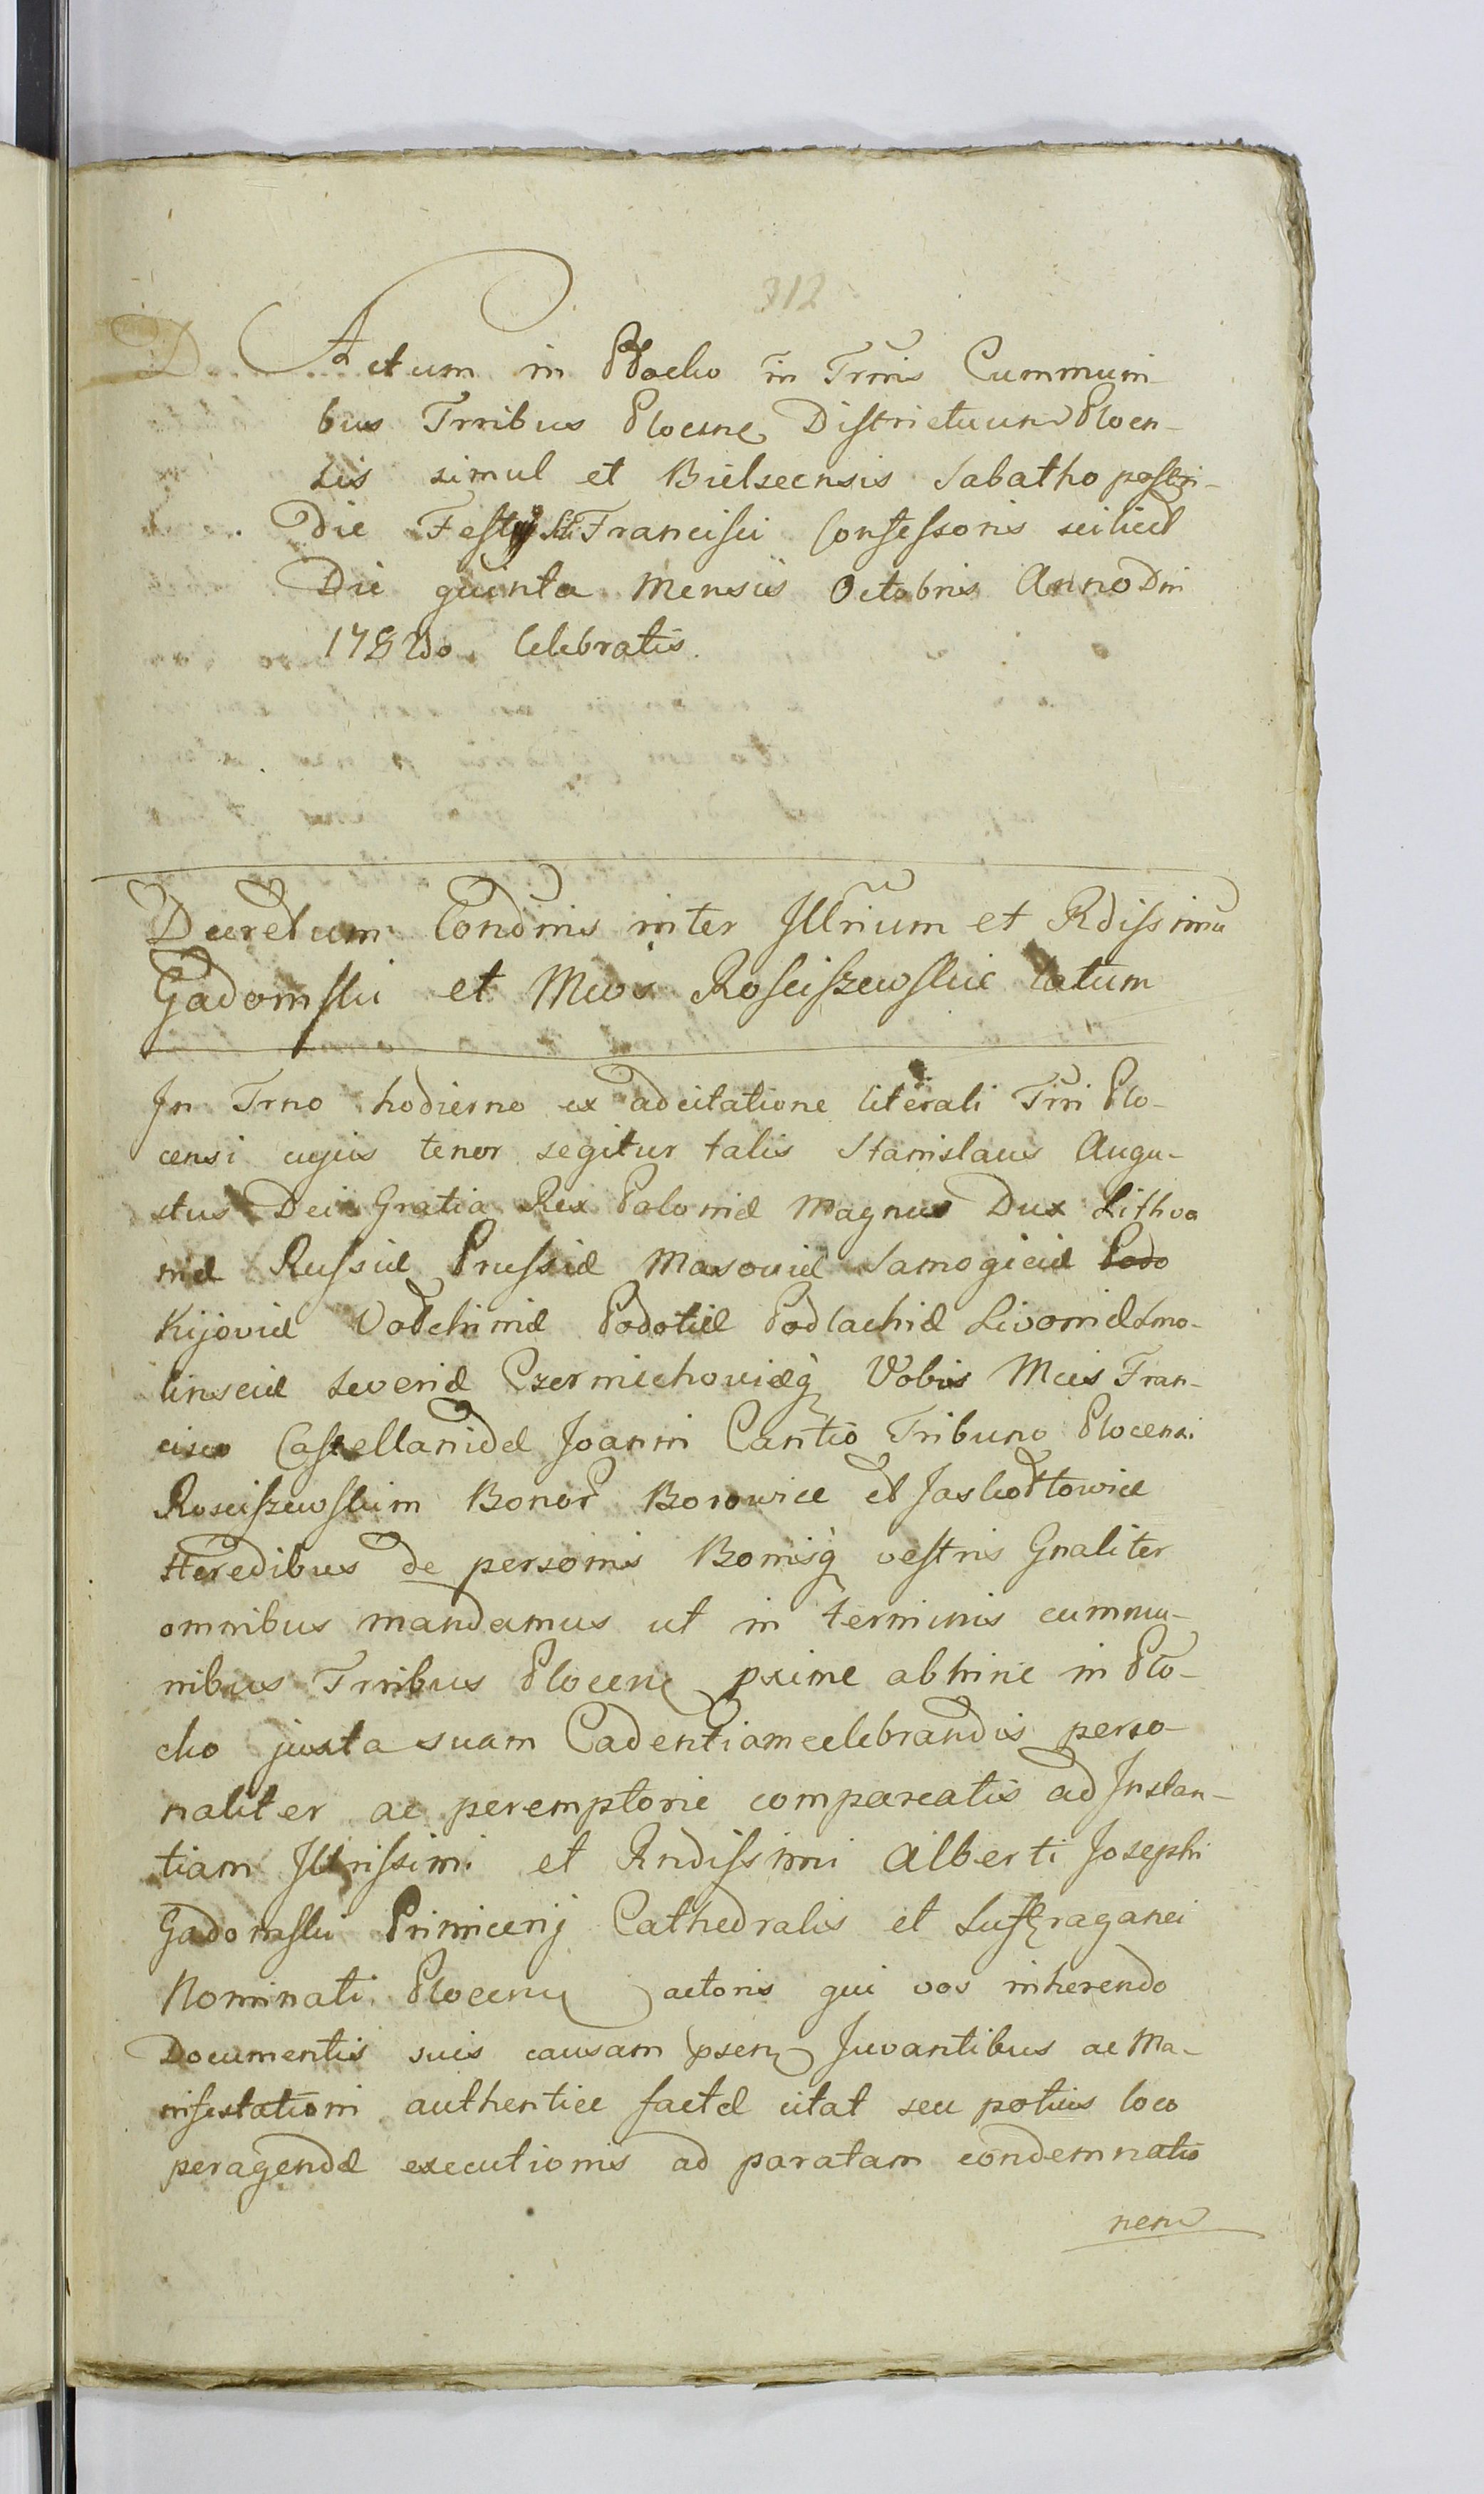 312
Actum in Plocko in Trnis Cummuni-
bus Trribus Plocens Districtuum Plocen-
sis simul et Bielscensis Sabatho postri-
Die Festi Sti Francisci Confessoris scilicet
Die quinta Mensis Octobris Anno Dni
1782do Celebratis.
Decretum Condnis inter Illrium et Rdissimu
Gadomski et Mcos Rosciszewskie latum
In Trno hodierno ex adcitatione literali Trri Plo-
censi cujus tenor segitur talis Stanislaus Augu-
stus Dei Gratia Rex Poloniæ Magnus Dux Lithva
niæ Russiæ Prussiæ Masoviæ Samogiciæ Podo
Kijoviæ Volchiniæ Podoliæ Podlachiæ Livoniæ Smo-
linsciæ Severiæ Czerniechoviæq Vobis Mcis Fran-
cisco Castellanidæ Joanni Cantio Tribuno Plocensi
Rosciszewskim Bonor Borowice et Jaskołtowice
Heredibus de personis Bonisq vestris Gnaliter
omnibus mandamus ut in terminis cummu-
nibus Trribus Plocens pxime abhinc in Plo-
cko juxta suam Cadentiam celebrandis perso-
naliter ac peremptorie compareatis ad Instan-
tiam Illrissimi et Rndissimi Alberti Josephi
Gadomski Primicerij Cathedralis et Suffraganei
Nominati Plocens actoris qui vos inherendo
Documentis suis causam psens Juvantibus ac Ma-
nifestationi authentice factæ citat seu potius loco
peragendæ executionis ad paratam condemnatio
nem